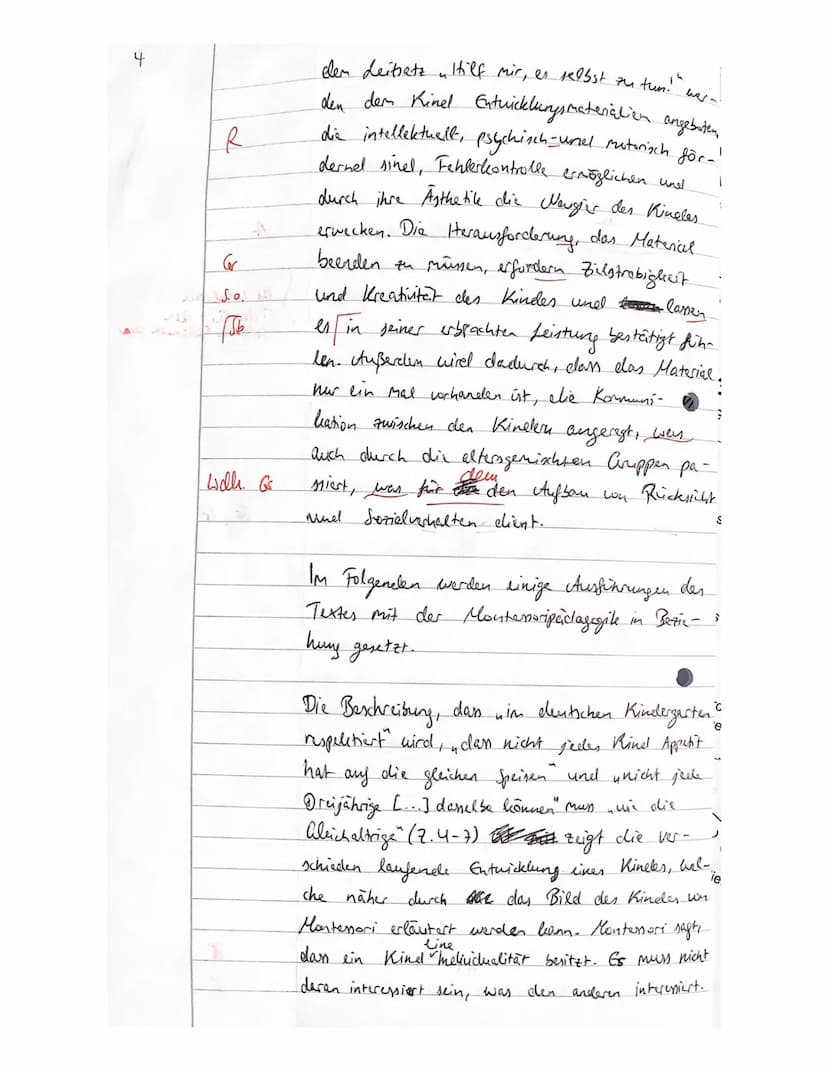 4
dem Leitsatz „Hilf mir, es selbst zu tun!" wer-
den dem Kind Entwicklungsmaterialien angeboten,
R die intellektuell, psychisch-und motorisch för-
dernd sind, Fehlerkontrolle ermöglichen und
durch ihre Ästhetik die Neugier des Kindes
erwecken. Die Herausforderung, das Material
Gr beenden zu müssen, erfordern Zielstrebigkeit
s.o. und Kreativität des Kindes und lassen
Sb es in seiner erbrachten Leistung bestätigt füh-
len. Außerdem wird dadurch, dass das Material
nur ein Mal vorhanden ist, die Kommuni-
kation zwischen den Kindern angeregt, was
auch durch die altersgemischten Gruppen pa-
Wdh. Gr ssiert, was für den Aufbau von Rücksicht
dem
und Sozialverhalten dient.
Im Folgenden werden einige Ausführungen des
Textes mit der Montessoripädagogik in Bezie-
hung gesetzt.
Die Beschreibung, dass „im deutschen Kindergarten
respektiert" wird, „dass nicht jedes Kind Appetit
hat auf die gleichen Speisen" und „nicht jede
Dreijährige [...] dasselbe können" muss „wie die
Gleichaltrige" (Z.4-7) zeigt die ver-
schieden laufende Entwicklung eines Kindes, wel-
che näher durch das Bild des Kindes von
Montessori erläutert werden kann. Montessori sagt,
dass ein Kind eine Individualität besitzt. Es muss nicht
daran interessiert sein, was den anderen interessiert.